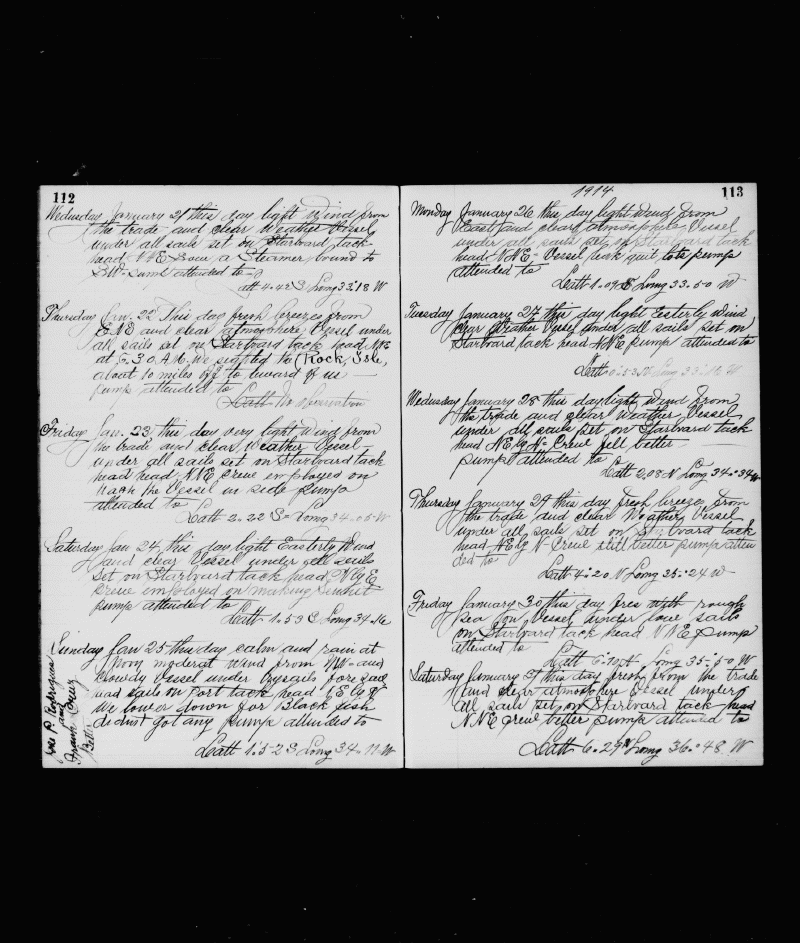 112
Wednesday January 21 this day light Wind from
the trade and clear Weather Vessel
under all sails set on Starbord tack
head NNE Saw a Steamer bound to
SW- pump attended to
Latt 4.42 S Long 33.18 W
Thursday Jan. 22 This day fresh breezes from
ENE and clear atmosphere Vessel under
all sails set on Starbord tack head NNE
at 6.30 A.M. We sighted the (Rock, Isle,
about 10 miles off to leward of us
pump attended to
Latt No observation
Friday Jan. 23, this day very light Wind from
the trade and clear Weather Vessel
under all sails set on Starbord tack
head head NNE Crew imployed on
the Vessel in side pump
attended to
Latt 2.22 S Long 34.05 W
Saturday Jan 24, this day light Easterly Wind
and clear Vessel under all sails
set on Starbord tack head, N by E
Crew employed on making
pump attended to
Latt 1.53 S Long 34.16
Sunday Jan 25 this day calm and rain at
moderat wind from NW- and
Clowdy Vessel under trysails fore sail
head sails on Port tack head
We lower down for Black fish
dednt got any pump attended to
Latt 1.52 S Long 34.11 W
P Rodrigues
and
Frank Cruz
Better
1914
113
Monday January 26 this day light Wind from
East and clear atmosphere Vessel
under all sails set on Starbord tack
head NNE- Vessel leak quit lots pump
attended to
Latt 1.09 S Long 33.50 W
Tuesday January 27 this day light Easterly Wind
clear Weather Vessel under all sails set on
Starbord tack head NNE pump attended to
Latt 0.53 Long 33.16 W
Wednesday January 28 this day light wind from
the trade and clear Weather Vessel
under all sails set on Starbord tack
head NE by N- Crew fell better
pump attended to
Latt 2.08 N Long 34.34 W
Thursday January 29 this day fresh breeze from
the trade and clear Weather Vessel
under all sails set on Starbord tack
head NE by N Crew still better pump atten
ded to
Latt 4.20 N Long 35.24 W
Friday January 30 this day fres with rough
sea on Vessel under lowe sails
on Starbord tack head NNE pump
attended to
Latt 6.10 N Long 35.50 W
Saturday January 31 this day fresh from the trade
and clear atmosphere Vessel under
all sails set on Starbord tack head
NNE crew better pump attended to
Latt 6.29 N Long 36.48 W